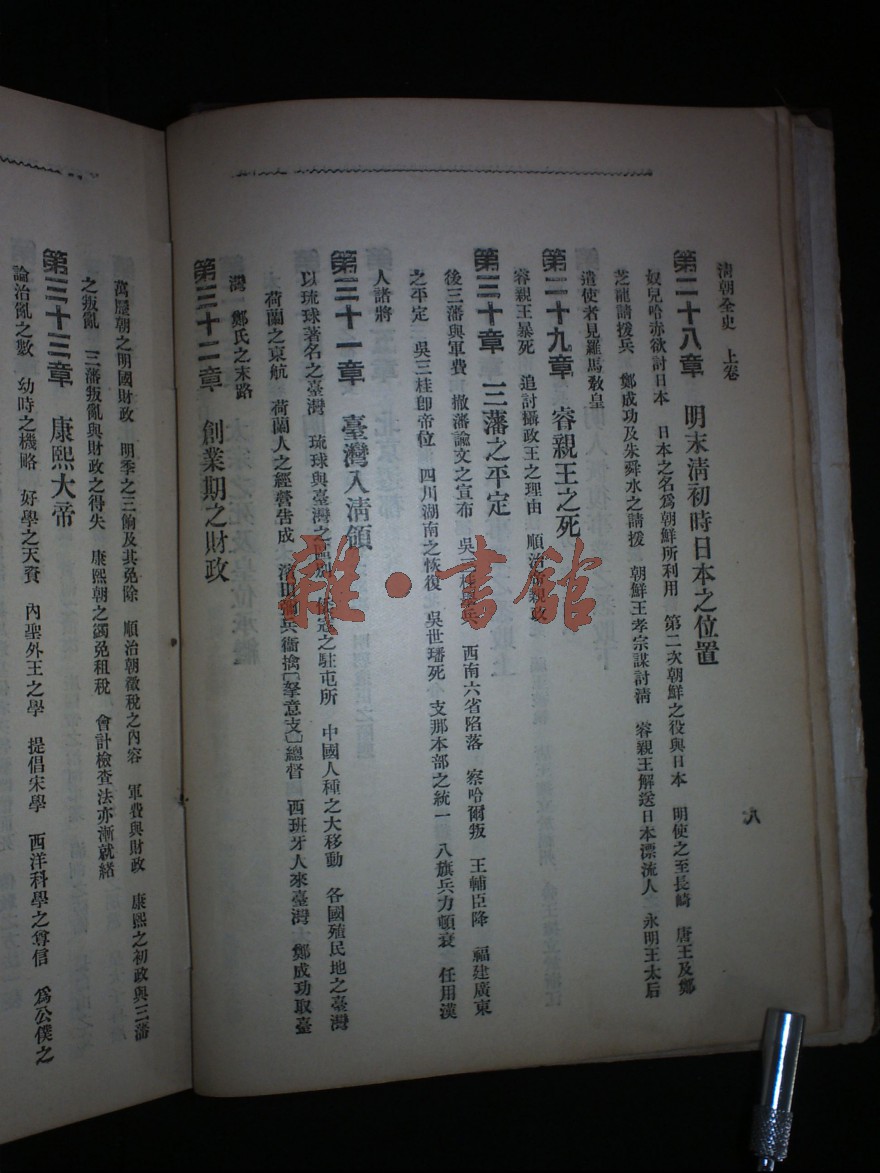 清朝全史　上卷
八
第二十八章　明末清初時日本之位置
奴兒哈赤欲討日本　日本之名爲朝鮮所利用　第二次朝鮮之役與日本　明使之至長崎　唐王及鄭
芝龍請援兵　鄭成功及朱舜水之請援　朝鮮王孝宗謀討淸　睿親王解送日本漂流人　永明王太后
遣使者見羅馬敎皇
第二十九章　睿親王之死
睿親王暴死　追討攝政王之理由　順治帝親政
第三十章　三藩之平定
後三藩與軍費　撤藩諭文之宣布　吳三桂　西南六省陷落　察哈爾叛　王輔臣降　福建廣東
之平定　吳三桂卽帝位　四川湖南之恢復　吳世璠死　支那本部之統一　八旗兵力頓衰　任用漢
人諸將
第三十一章　臺灣入淸領
以琉球著名之臺灣　琉球與臺灣之區別　倭寇之駐屯所　中國人種之大移動　各國殖民地之臺灣
荷蘭之東航　荷蘭人之經營告成　濱田彌兵衞擒〔拏意支〕總督　西班牙人來臺灣　鄭成功取臺
灣　鄭氏之末路
第三十二章　創業期之財政
萬曆朝之明國財政　明季之三餉及其免除　順治朝徵稅之內容　軍費與財政　康熙之初政與三藩
之叛亂　三藩叛亂與財政之得失　康熙朝之蠲免租稅　會計檢查法亦漸就緖
第三十三章　康熙大帝
論治亂之數　幼時之機略　好學之天資　內聖外王之學　提倡宋學　西洋科學之尊信　爲公僕之
雜·書館